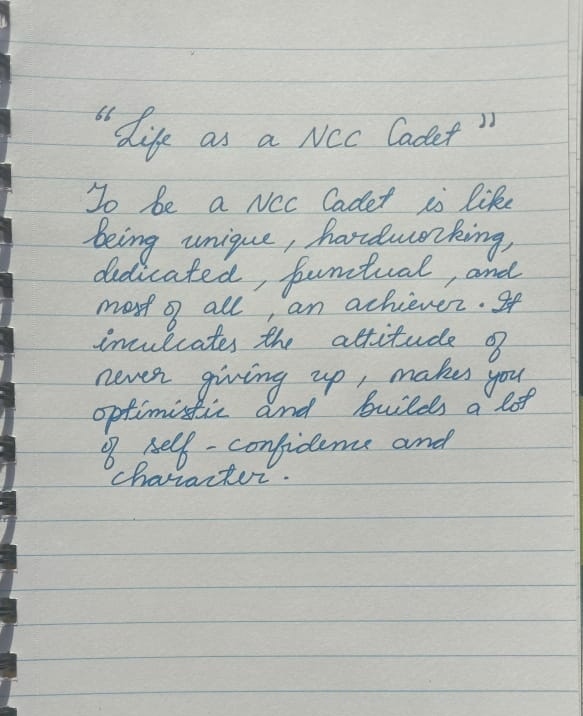 "Life as a NCC Cadet"
To be a NCC Cadet is like
being unique, hardworking,
dedicated, punctual, and
most of all, an achiever. It
inculcates the attitude of
never giving up, makes you
optimistic and builds a lot
of self-confidence and
character.